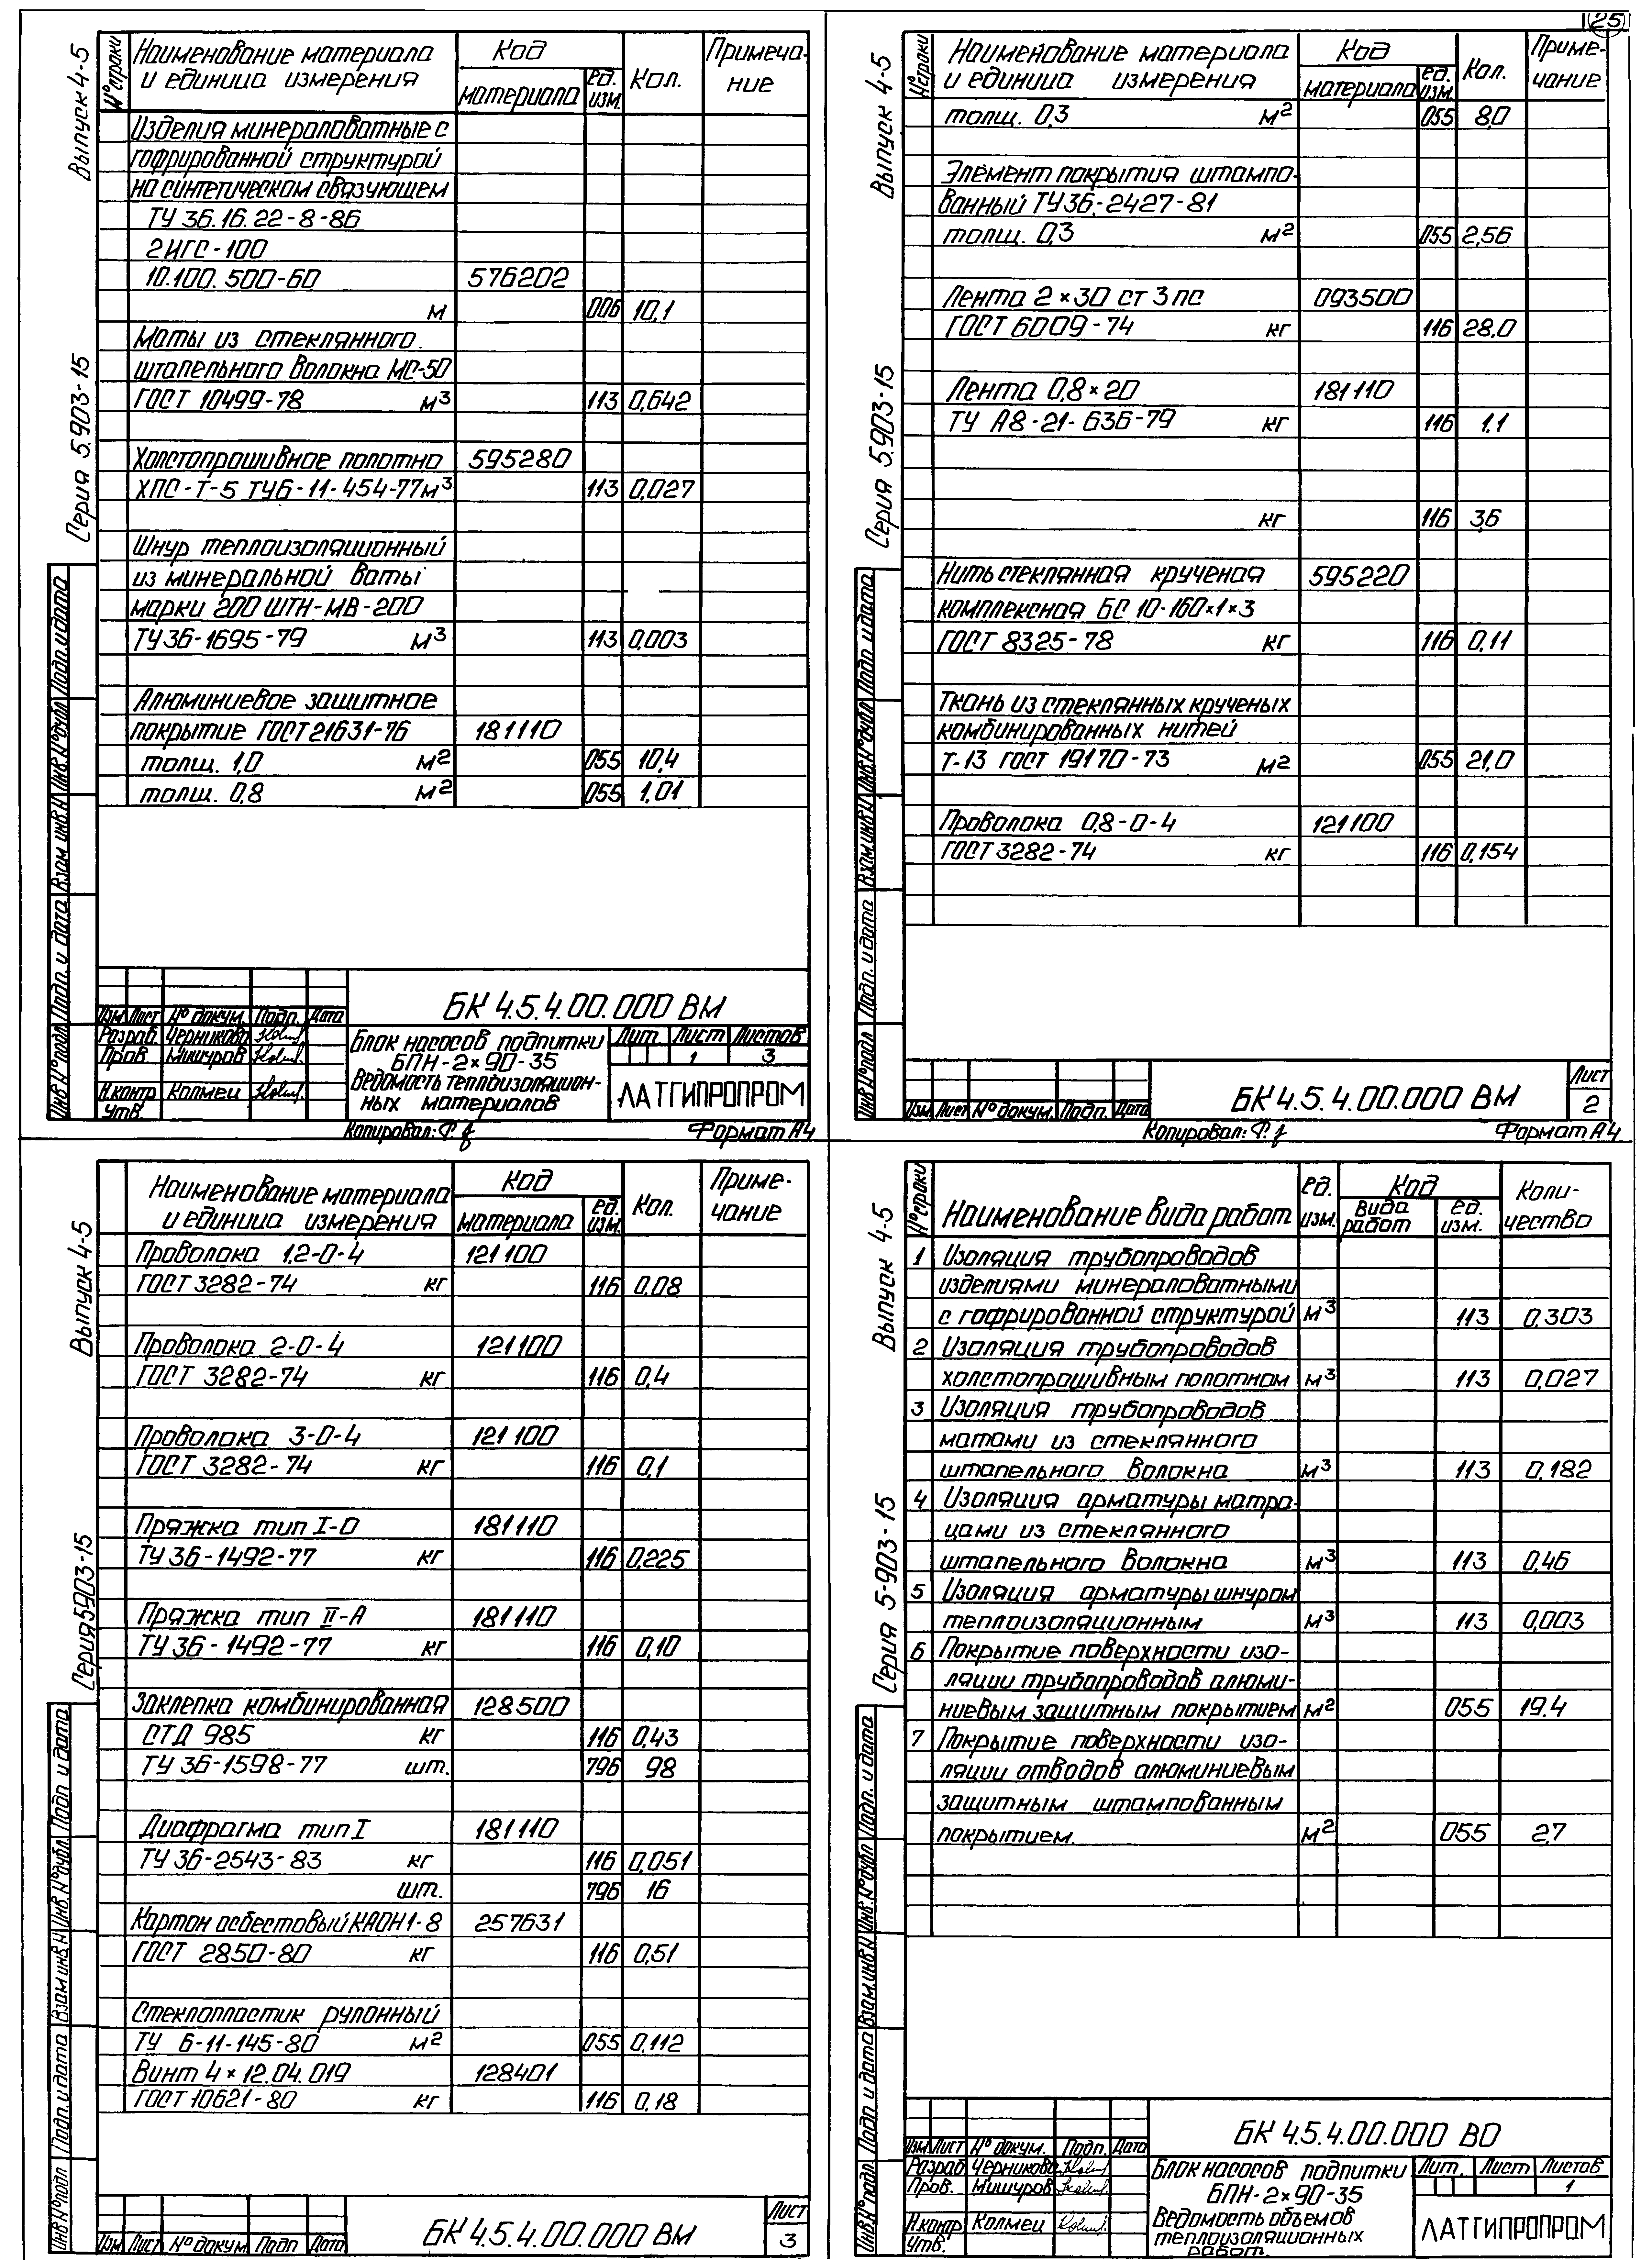 25
Выпуск 4-5
Серия 5.903-15
№ строки
Наименование материала
и единица измерения
Код
материала
ед. изм.
Кол.
Примеча-
ние
Изделия минераловатные с
гофрированной структурой
на синтетическом связующем
ТУ 36.16.22-8-86
2ИГС-100
10.100.500-60 576202
м 006 10,1
Маты из стеклянного
штапельного волокна МС-50
ГОСТ 10499-78 м³ 113 0,642
Холстопрошивное полотно 595280
ХПС-Т-5 ТУ6-11-454-77 м³ 113 0,027
Шнур теплоизоляционный
из минеральной ваты
марки 200 ШТН-МВ-200
ТУ36-1695-79 м³ 113 0,003
Алюминиевое защитное
покрытие ГОСТ 21631-76 181110
толщ. 1,0 м² 055 10,4
толщ. 0,8 м² 055 1,01
Инв.№подл Подп. и дата Взам инв.№ Инв.№дубл Подп. и дата
БК 4.5.4.00.000 ВМ
Изм Лист № докум. Подп. Дата
Разраб. Черникова
Пров. Мишуров
Н.контр Колмец
Утв.
Блок насосов подпитки
БПН-2×90-35
Ведомость теплоизоляцион-
ных материалов
Лит. Лист Листов
1 3
ЛАТГИПРОПРОМ
Копировал:
Формат А4
Выпуск 4-5
Серия 5.903-15
№ строки
Наименование материала
и единица измерения
Код
материала
ед. изм.
Кол.
Приме-
чание
толщ. 0,3 м² 055 8,0
Элемент покрытия штампо-
ванный ТУ36-2427-81
толщ. 0,3 м² 055 2,56
Лента 2×30 ст 3 пс 093500
ГОСТ 6009-74 кг 116 28.0
Лента 0,8×20 181110
ТУ А8-21-636-79 кг 116 1.1
кг 116 3,6
Нить стеклянная крученая 595220
комплексная БС 10-160×1×3
ГОСТ 8325-78 кг 116 0,11
Ткань из стеклянных крученых
комбинированных нитей
Т-13 ГОСТ 19170-73 м² 055 21,0
Проволока 0,8-0-4 121100
ГОСТ 3282-74 кг 116 0,154
Инв.№подл Подп. и дата Взам.инв.№ Инв.№дубл Подп. и дата
Изм Лист № докум. Подп. Дата
БК 4.5.4.00.000 ВМ
Лист
2
Копировал:
Формат А4
Выпуск 4-5
Серия 5.903-15
Наименование материала
и единица измерения
Код
материала
ед. изм.
Кол.
Приме-
чание
Проволока 1,2-0-4 121100
ГОСТ 3282-74 кг 116 0,08
Проволока 2-0-4 121100
ГОСТ 3282-74 кг 116 0,4
Проволока 3-0-4 121100
ГОСТ 3282-74 кг 116 0,1
Пряжка тип I-0 181110
ТУ 36-1492-77 кг 116 0,225
Пряжка тип II-А 181110
ТУ 36-1492-77 кг 116 0,10
Заклепка комбинированная 128500
СТД 985 кг 116 0,43
ТУ 36-1598-77 шт. 796 98
Диафрагма тип I 181110
ТУ 36-2543-83 кг 116 0,051
шт. 796 16
Картон асбестовый КАОН1-8 257631
ГОСТ 2850-80 кг 116 0,51
Стеклопластик рулонный
ТУ 6-11-145-80 м² 055 0,112
Винт 4×12.04.019 128401
ГОСТ 10621-80 кг 116 0,18
Инв.№подл Подп. и дата Взам инв.№ Инв.№дубл. Подп и дата
Изм Лист № докум Подп Дата
БК 4.5.4.00.000 ВМ
Лист
3
Выпуск 4-5
Серия 5-903-15
№ строки
Наименование вида работ
ед. изм.
Код
вида работ
ед. изм.
Коли-
чество
1 Изоляция трубопроводов
изделиями минераловатными
с гофрированной структурой м³ 113 0,303
2 Изоляция трубопроводов
холстопрошивным полотном м³ 113 0,027
3 Изоляция трубопроводов
матами из стеклянного
штапельного волокна м³ 113 0,182
4 Изоляция арматуры матра-
цами из стеклянного
штапельного волокна м³ 113 0,46
5 Изоляция арматуры шнуром
теплоизоляционным м³ 113 0,003
6 Покрытие поверхности изо-
ляции трубопроводов алюми-
ниевым защитным покрытием м² 055 19.4
7 Покрытие поверхности изо-
ляции отводов алюминиевым
защитным штампованным
покрытием. м² 055 2,7
Инв.№подл. Подп и дата Взам инв.№ Инв.№дубл Подп. и дата
БК 4.5.4.00.000 ВО
Изм Лист № докум. Подп. Дата
Разраб Черникова
Пров. Мишуров
Н.контр Колмец
Утв.
Блок насосов подпитки
БПН-2×90-35
Ведомость объемов
теплоизоляционных
работ.
Лит. Лист Листов
1
ЛАТГИПРОПРОМ